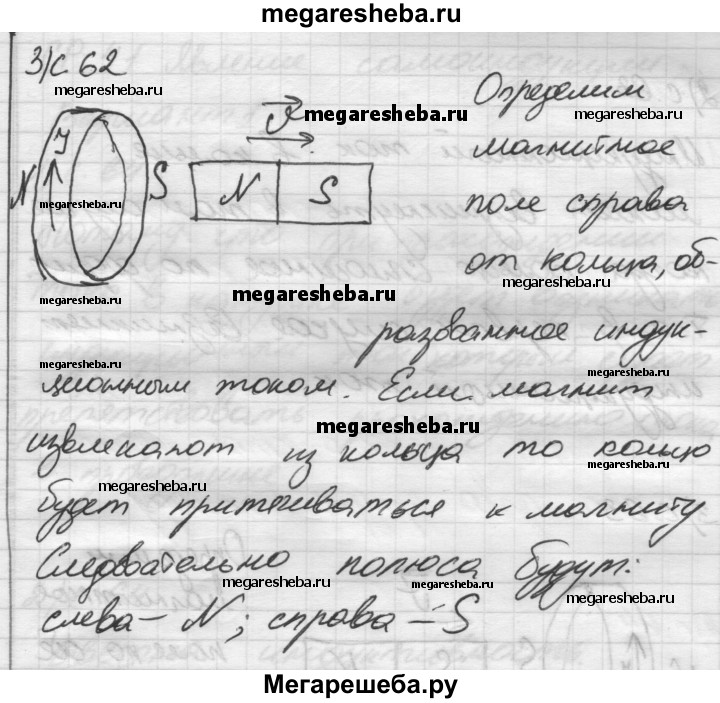 megaresheba.ru
3) с 62
megaresheba.ru
Определим
магнитное
поле справа
от кольца, об-
разованное индук-
ционным током. Если магнит
извлекают из кольца то кольцо
будет притягиваться к магниту
Следовательно полюса будут:
слева – N; справа – S
N
I
S
N
S
megaresheba.ru
megaresheba.ru
megaresheba.ru
megaresheba.ru
megaresheba.ru
megaresheba.ru
megaresheba.ru
megaresheba.ru
megaresheba.ru
megaresheba.ru
megaresheba.ru
megaresheba.ru
megaresheba.ru
megaresheba.ru
Мегарешеба.ру